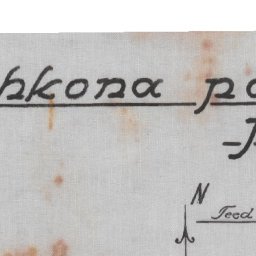 hkona pa
N
Teed